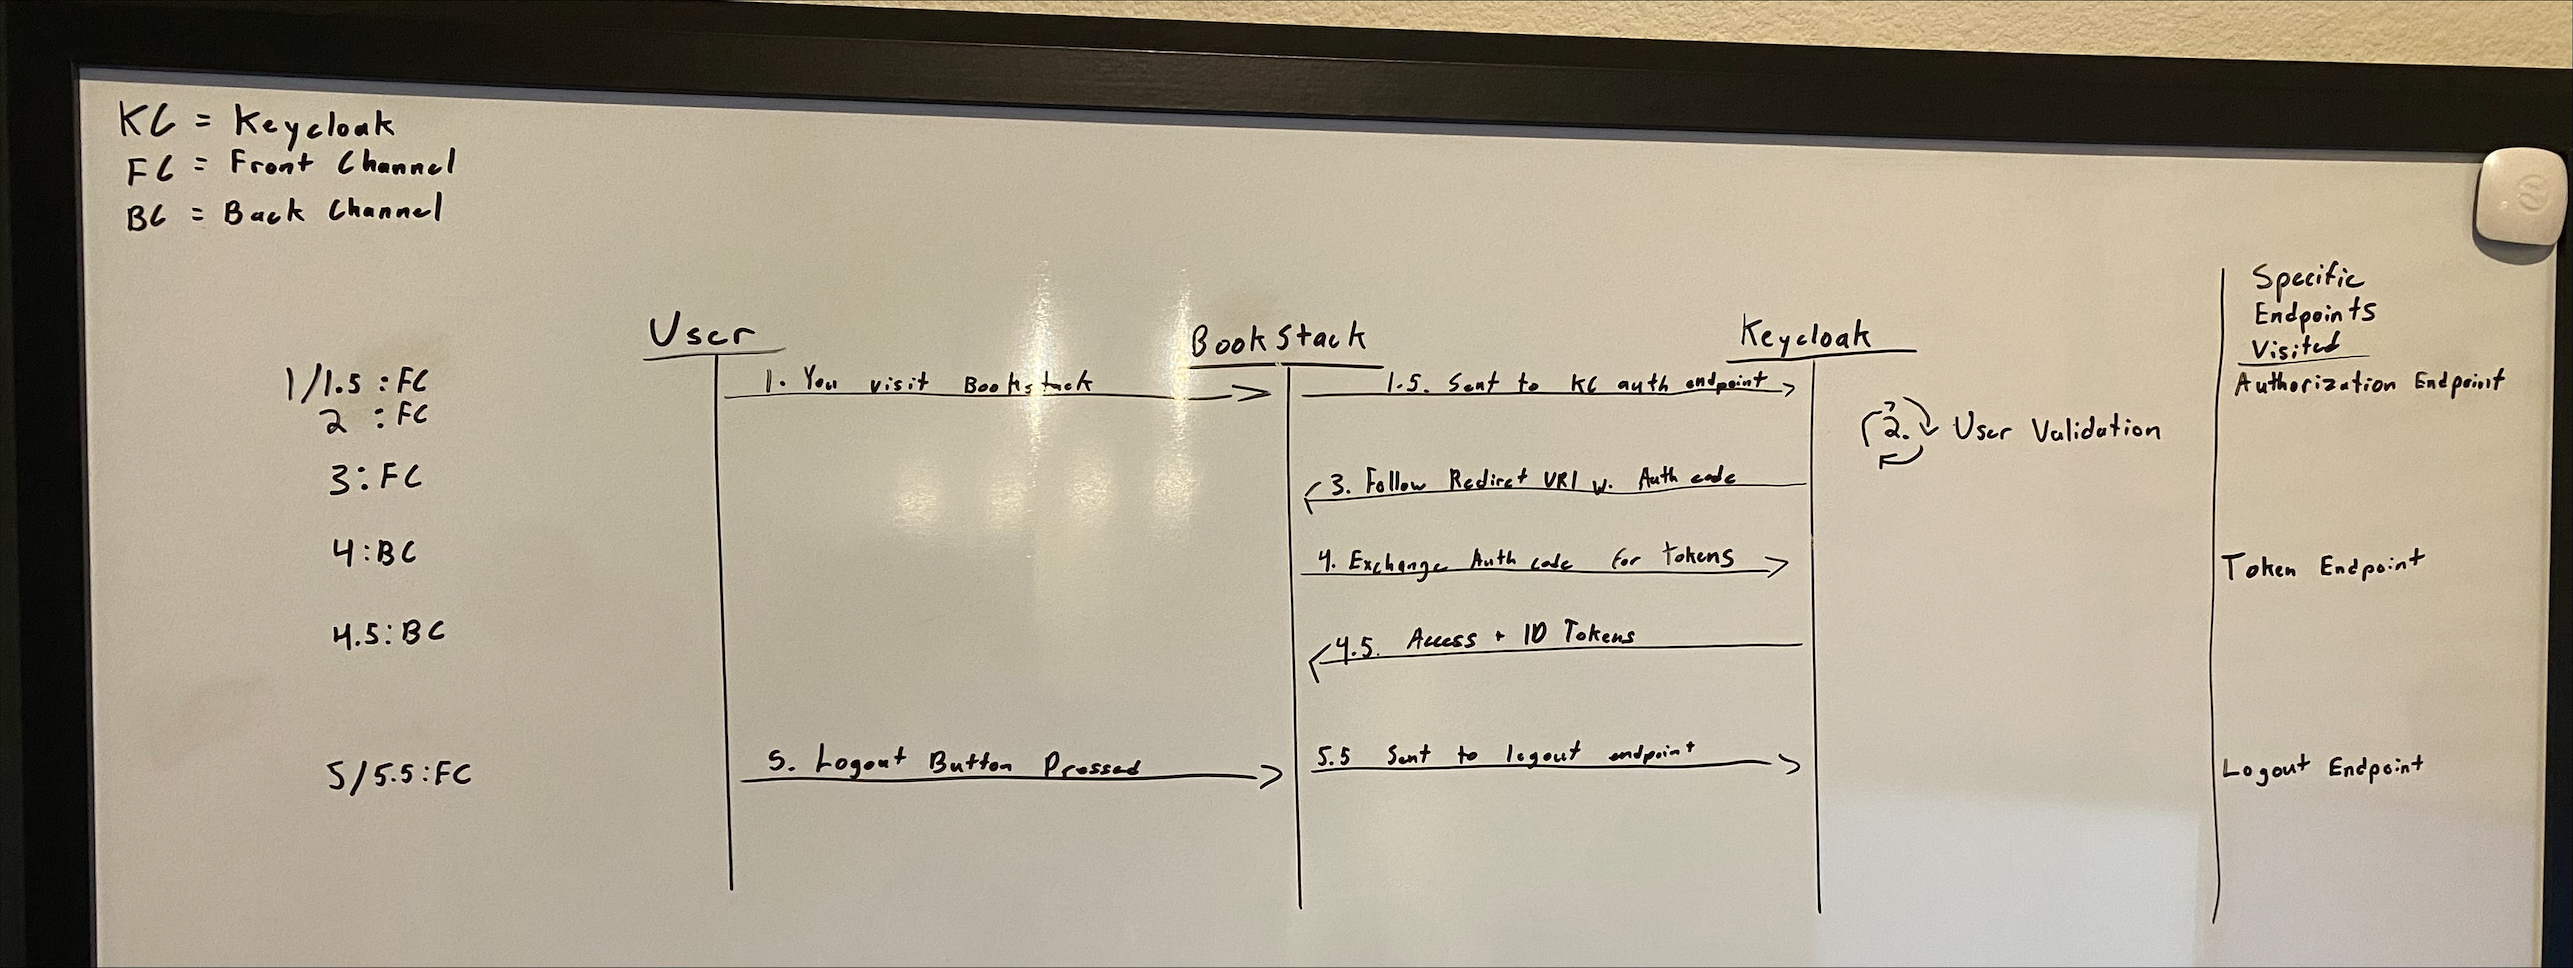 KC = Keycloak
FC = Front Channel
BC = Back Channel
User
BookStack
Keycloak
Specific
Endpoints
Visited
1/1.5 : FC
1. You visit Bookstack
1.5. Sent to KC auth endpoint
Authorization Endpoint
2 : FC
2. User Validation
3: FC
3. Follow Redirct URI w. Auth code
4: BC
4. Exchange Auth code for tokens
Token Endpoint
4.5: BC
4.5. Access + ID Tokens
5/5.5: FC
5. Logout Button Pressed
5.5 Sent to logout endpoint
Logout Endpoint